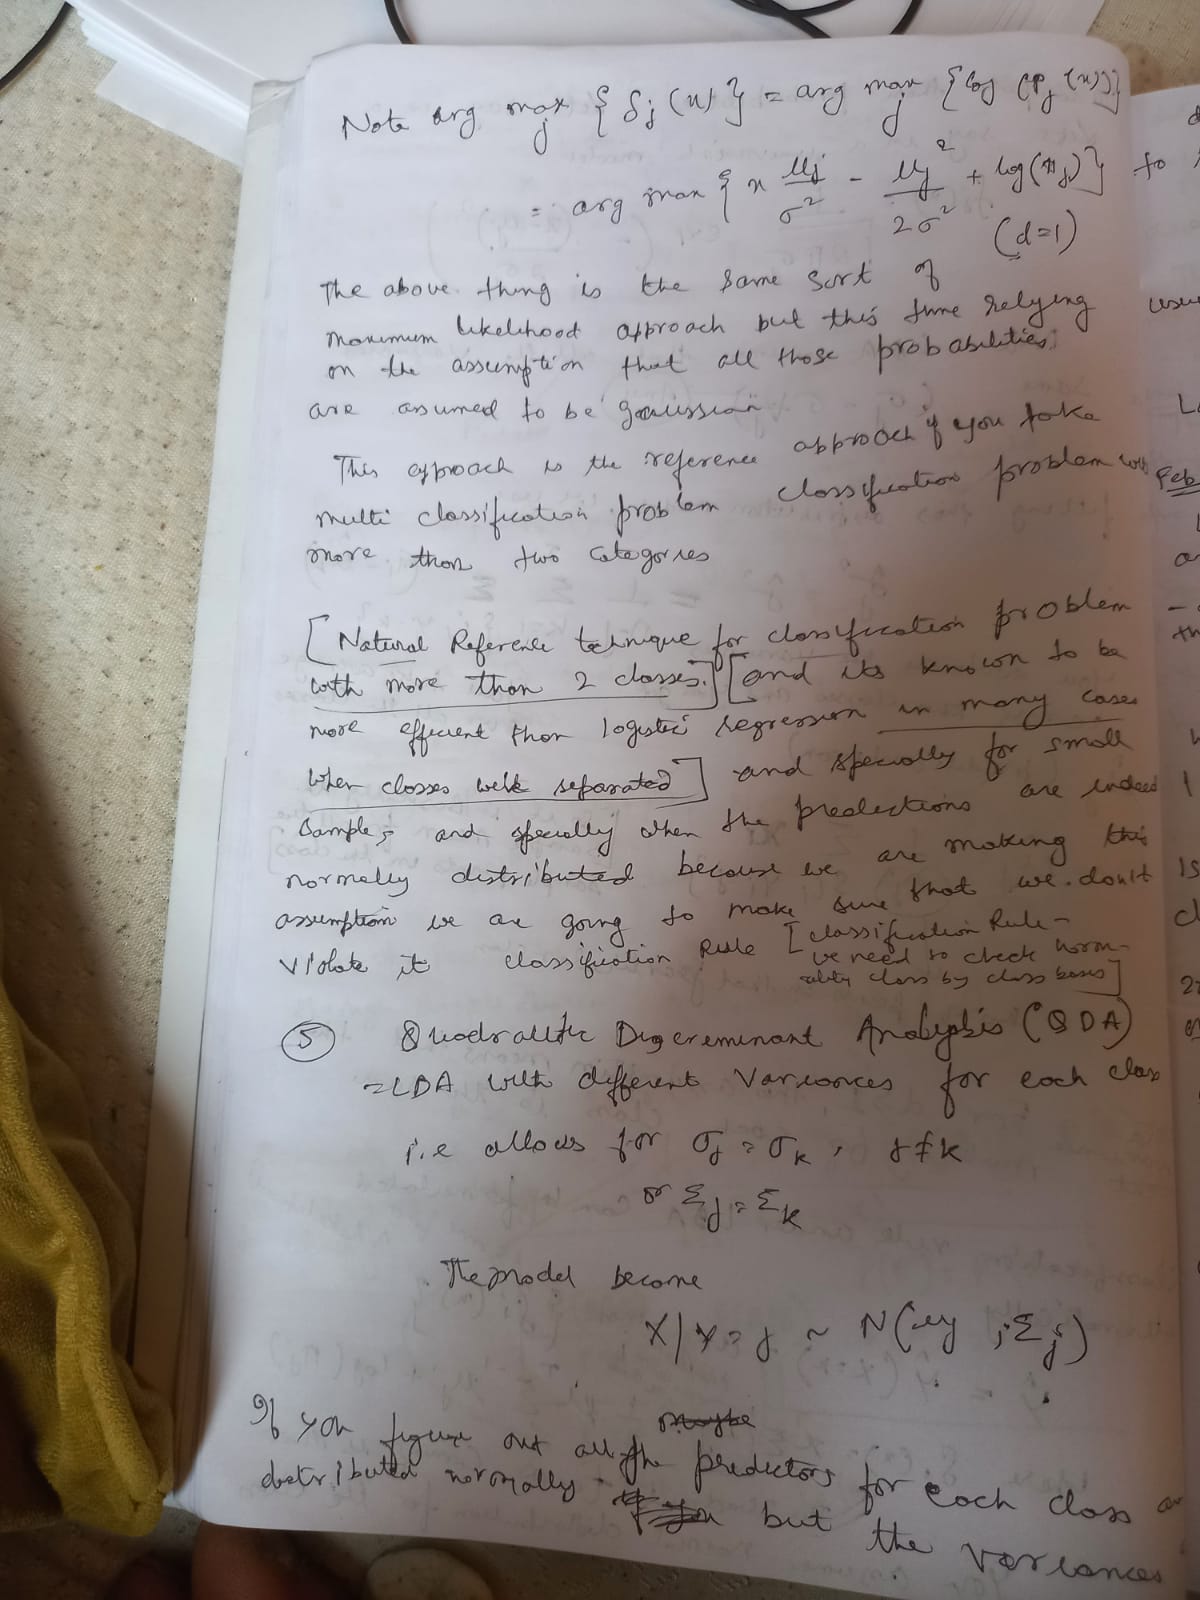 Note arg max j { δj (x) } = arg max j { log (Pj (x)) }
= arg max { x μj/σ² - μj²/2σ² + log(πj) } (d=1)
The above thing is the same sort of
maximum likelihood approach but this time relying
on the assumption that all those probabilities
are assumed to be gaussian
This approach is the reference approach if you take
multi classification problem classification problem with
more than two categories
[Natural Reference technique for classification problem
with more than 2 classes.] [and its known to be
more efficient than logistic regression in many cases
when classes well separated] and specially for small
samples and specially when the predictions are indeed
normally distributed because we are making this
assumption we are going to make sure that we don't
violate it classification Rule [classification Rule -
we need to check norm-
ality class by class bases]
(5) Quadratic Discreminant Analysis (QDA)
= LDA with different Variances for each class
i.e allows for σj = σk , j ≠ k
or Σj = Σk
The model become
X/Y = j ~ N(μj ; Σj)
If you figure out all the predictors for each class
distributed normally but the variances
to
Feb